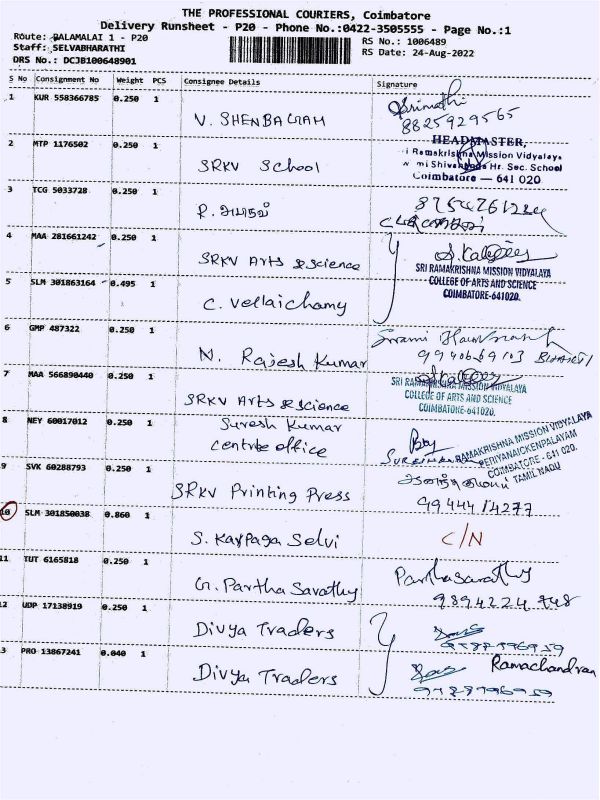 THE PROFESSIONAL COURIERS, Coimbatore
Delivery Runsheet - P20 - Phone No.:0422-3505555 - Page No.:1
Route: PALAMALAI 1 - P20
Staff: SELVABHARATHI
DRS No.: DCJB100648901
RS No.: 1006489
RS Date: 24-Aug-2022
S No Consignment No Weight PCS Consignee Details Signature
1 KUR 558366785 0.250 1 V. SHENBAGAM Srimathi
8825929565
2 MTP 1176502 0.250 1 SRKV School
HEADMASTER,
i Ramakrishna Mission Vidyalaya
mi Shivananda Hr. Sec. School
Coimbatore — 641 020
3 TCG 5033728 0.250 1 R. அரவிந்
4 MAA 281661242 0.250 1 SRKV Arts & Science
SRI RAMAKRISHNA MISSION VIDYALAYA
COLLEGE OF ARTS AND SCIENCE
COIMBATORE-641020.
5 SLM 301863164 0.495 1 C. Vellaichamy
6 GMP 487322 0.250 1 N. Rajesh Kumar Swami
9940669103
7 MAA 566890440 0.250 1 SRKV Arts & Science
SRI RAMAKRISHNA MISSION VIDYALAYA
COLLEGE OF ARTS AND SCIENCE
COIMBATORE-641020.
8 NEY 60017012 0.250 1 Suresh Kumar
Centre office
RAMAKRISHNA MISSION VIDYALAYA
PERIYANAICKENPALAYAM
COIMBATORE - 641 020.
TAMIL NADU
9 SVK 60288793 0.250 1 SRKV Printing Press
9944414277
10 SLM 301850038 0.860 1 S. Karpaga Selvi C/N
11 TUT 6165818 0.250 1 G. Partha Sarathy Parthasarathy
9894224748
12 UDP 17138919 0.250 1 Divya Traders
3 PRO 13867241 0.040 1 Divya Traders Ramachandran